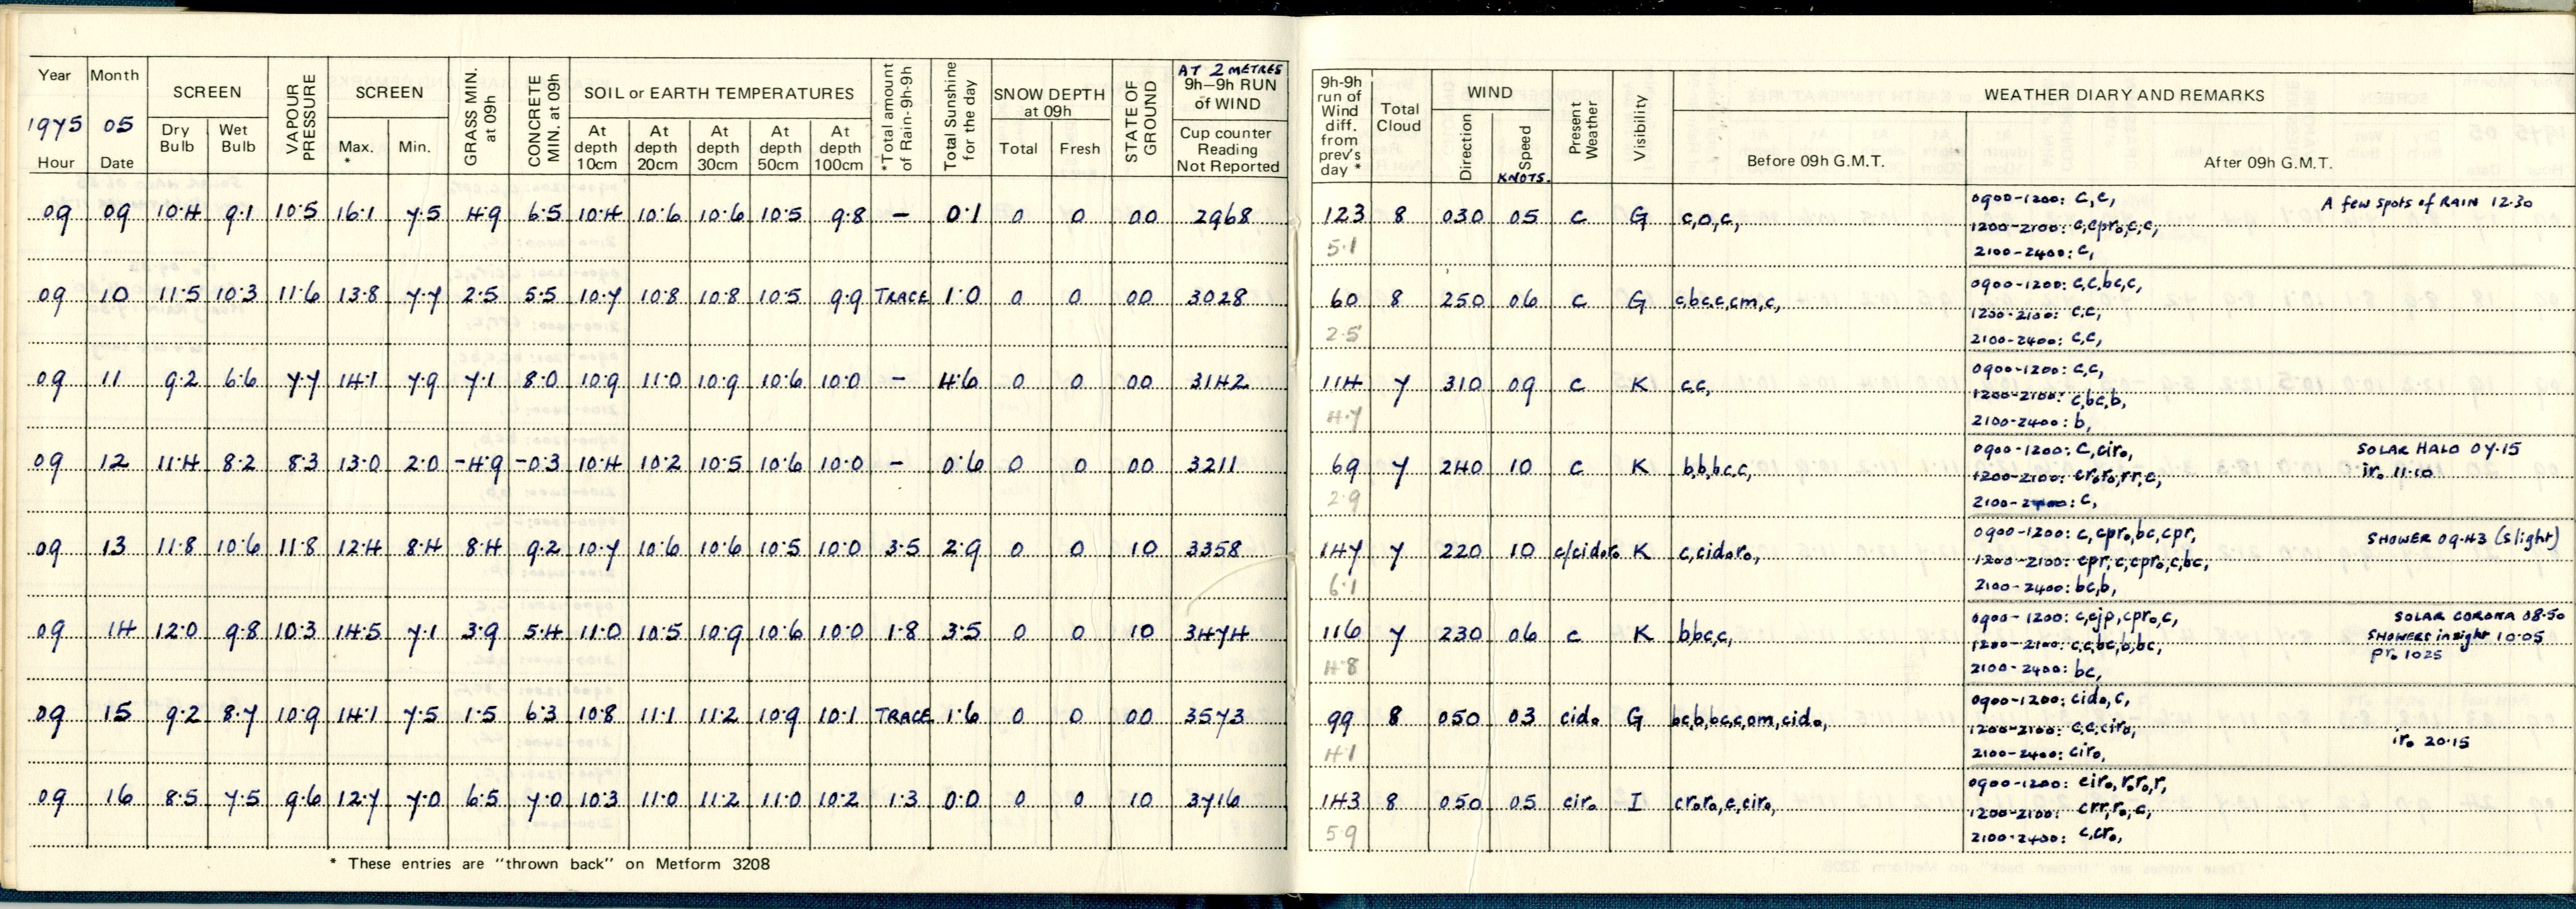 Year Month SCREEN VAPOUR PRESSURE SCREEN GRASS MIN. at 09h CONCRETE MIN. at 09h SOIL or EARTH TEMPERATURES *Total amount of Rain-9h-9h Total Sunshine for the day SNOW DEPTH at 09h STATE OF GROUND AT 2 METRES 9h–9h RUN of WIND
1975 05 Dry Bulb Wet Bulb Max. * Min. At depth 10cm At depth 20cm At depth 30cm At depth 50cm At depth 100cm Total Fresh Cup counter Reading Not Reported
Hour Date
09 09 10.4 9.1 10.5 16.1 7.5 4.9 6.5 10.4 10.6 10.6 10.5 9.8 – 0.1 0 0 00 2968
09 10 11.5 10.3 11.6 13.8 7.7 2.5 5.5 10.7 10.8 10.8 10.5 9.9 TRACE 1.0 0 0 00 3028
09 11 9.2 6.6 7.7 14.1 7.9 7.1 8.0 10.9 11.0 10.9 10.6 10.0 – 4.6 0 0 00 3142
09 12 11.4 8.2 8.3 13.0 2.0 -4.9 -0.3 10.4 10.2 10.5 10.6 10.0 – 0.6 0 0 00 3211
09 13 11.8 10.6 11.8 12.4 8.4 8.4 9.2 10.7 10.6 10.6 10.5 10.0 3.5 2.9 0 0 10 3358
09 14 12.0 9.8 10.3 14.5 7.1 3.9 5.4 11.0 10.5 10.9 10.6 10.0 1.8 3.5 0 0 10 3474
09 15 9.2 8.7 10.9 14.1 7.5 1.5 6.3 10.8 11.1 11.2 10.9 10.1 TRACE 1.6 0 0 00 3573
09 16 8.5 7.5 9.6 12.7 7.0 6.5 7.0 10.3 11.0 11.2 11.0 10.2 1.3 0.0 0 0 10 3716
* These entries are "thrown back" on Metform 3208
9h-9h run of Wind diff. from prev's day * Total Cloud WIND Present Weather Visibility WEATHER DIARY AND REMARKS
Direction Speed KNOTS. Before 09h G.M.T. After 09h G.M.T.
123 8 030 05 c G c,o,c, 0900-1200: c,c, A few spots of RAIN 12.30
5.1 1200-2100: c,cpr₀,c,c,
2100-2400: c,
60 8 250 06 c G c,bc,c,cm,c, 0900-1200: c,c,bc,c,
2.5 1200-2100: c,c,
2100-2400: c,c,
114 7 310 09 c K c,c, 0900-1200: c,c,
4.7 1200-2100: c,bc,b,
2100-2400: b,
69 7 240 10 c K b,b,bc,c, 0900-1200: c,cir₀, SOLAR HALO 07.15
2.9 1200-2100: cr₀r₀,rr,c, ir₀ 11.10
2100-2400: c,
147 7 220 10 c/cid₀r₀ K c,cid₀r₀, 0900-1200: c,cpr₀,bc,cpr, SHOWER 09.43 (slight)
6.1 1200-2100: cpr,c,cpr₀,c,bc,
2100-2400: bc,b,
116 7 230 06 c K b,bc,c, 0900-1200: c,cjp,cpr₀,c, SOLAR CORONA 08.50
4.8 1200-2100: c,c,bc,b,bc, SHOWERS in sight 10.05
2100-2400: bc, pr₀ 1025
99 8 050 03 cid₀ G bc,b,bc,c,om,cid₀, 0900-1200: cid₀,c,
4.1 1200-2100: c,c,cir₀, ir₀ 20.15
2100-2400: cir₀,
143 8 050 05 cir₀ I cr₀r₀,c,cir₀, 0900-1200: cir₀,r₀r₀,r,
5.9 1200-2100: crr,r₀,c,
2100-2400: c,cr₀,